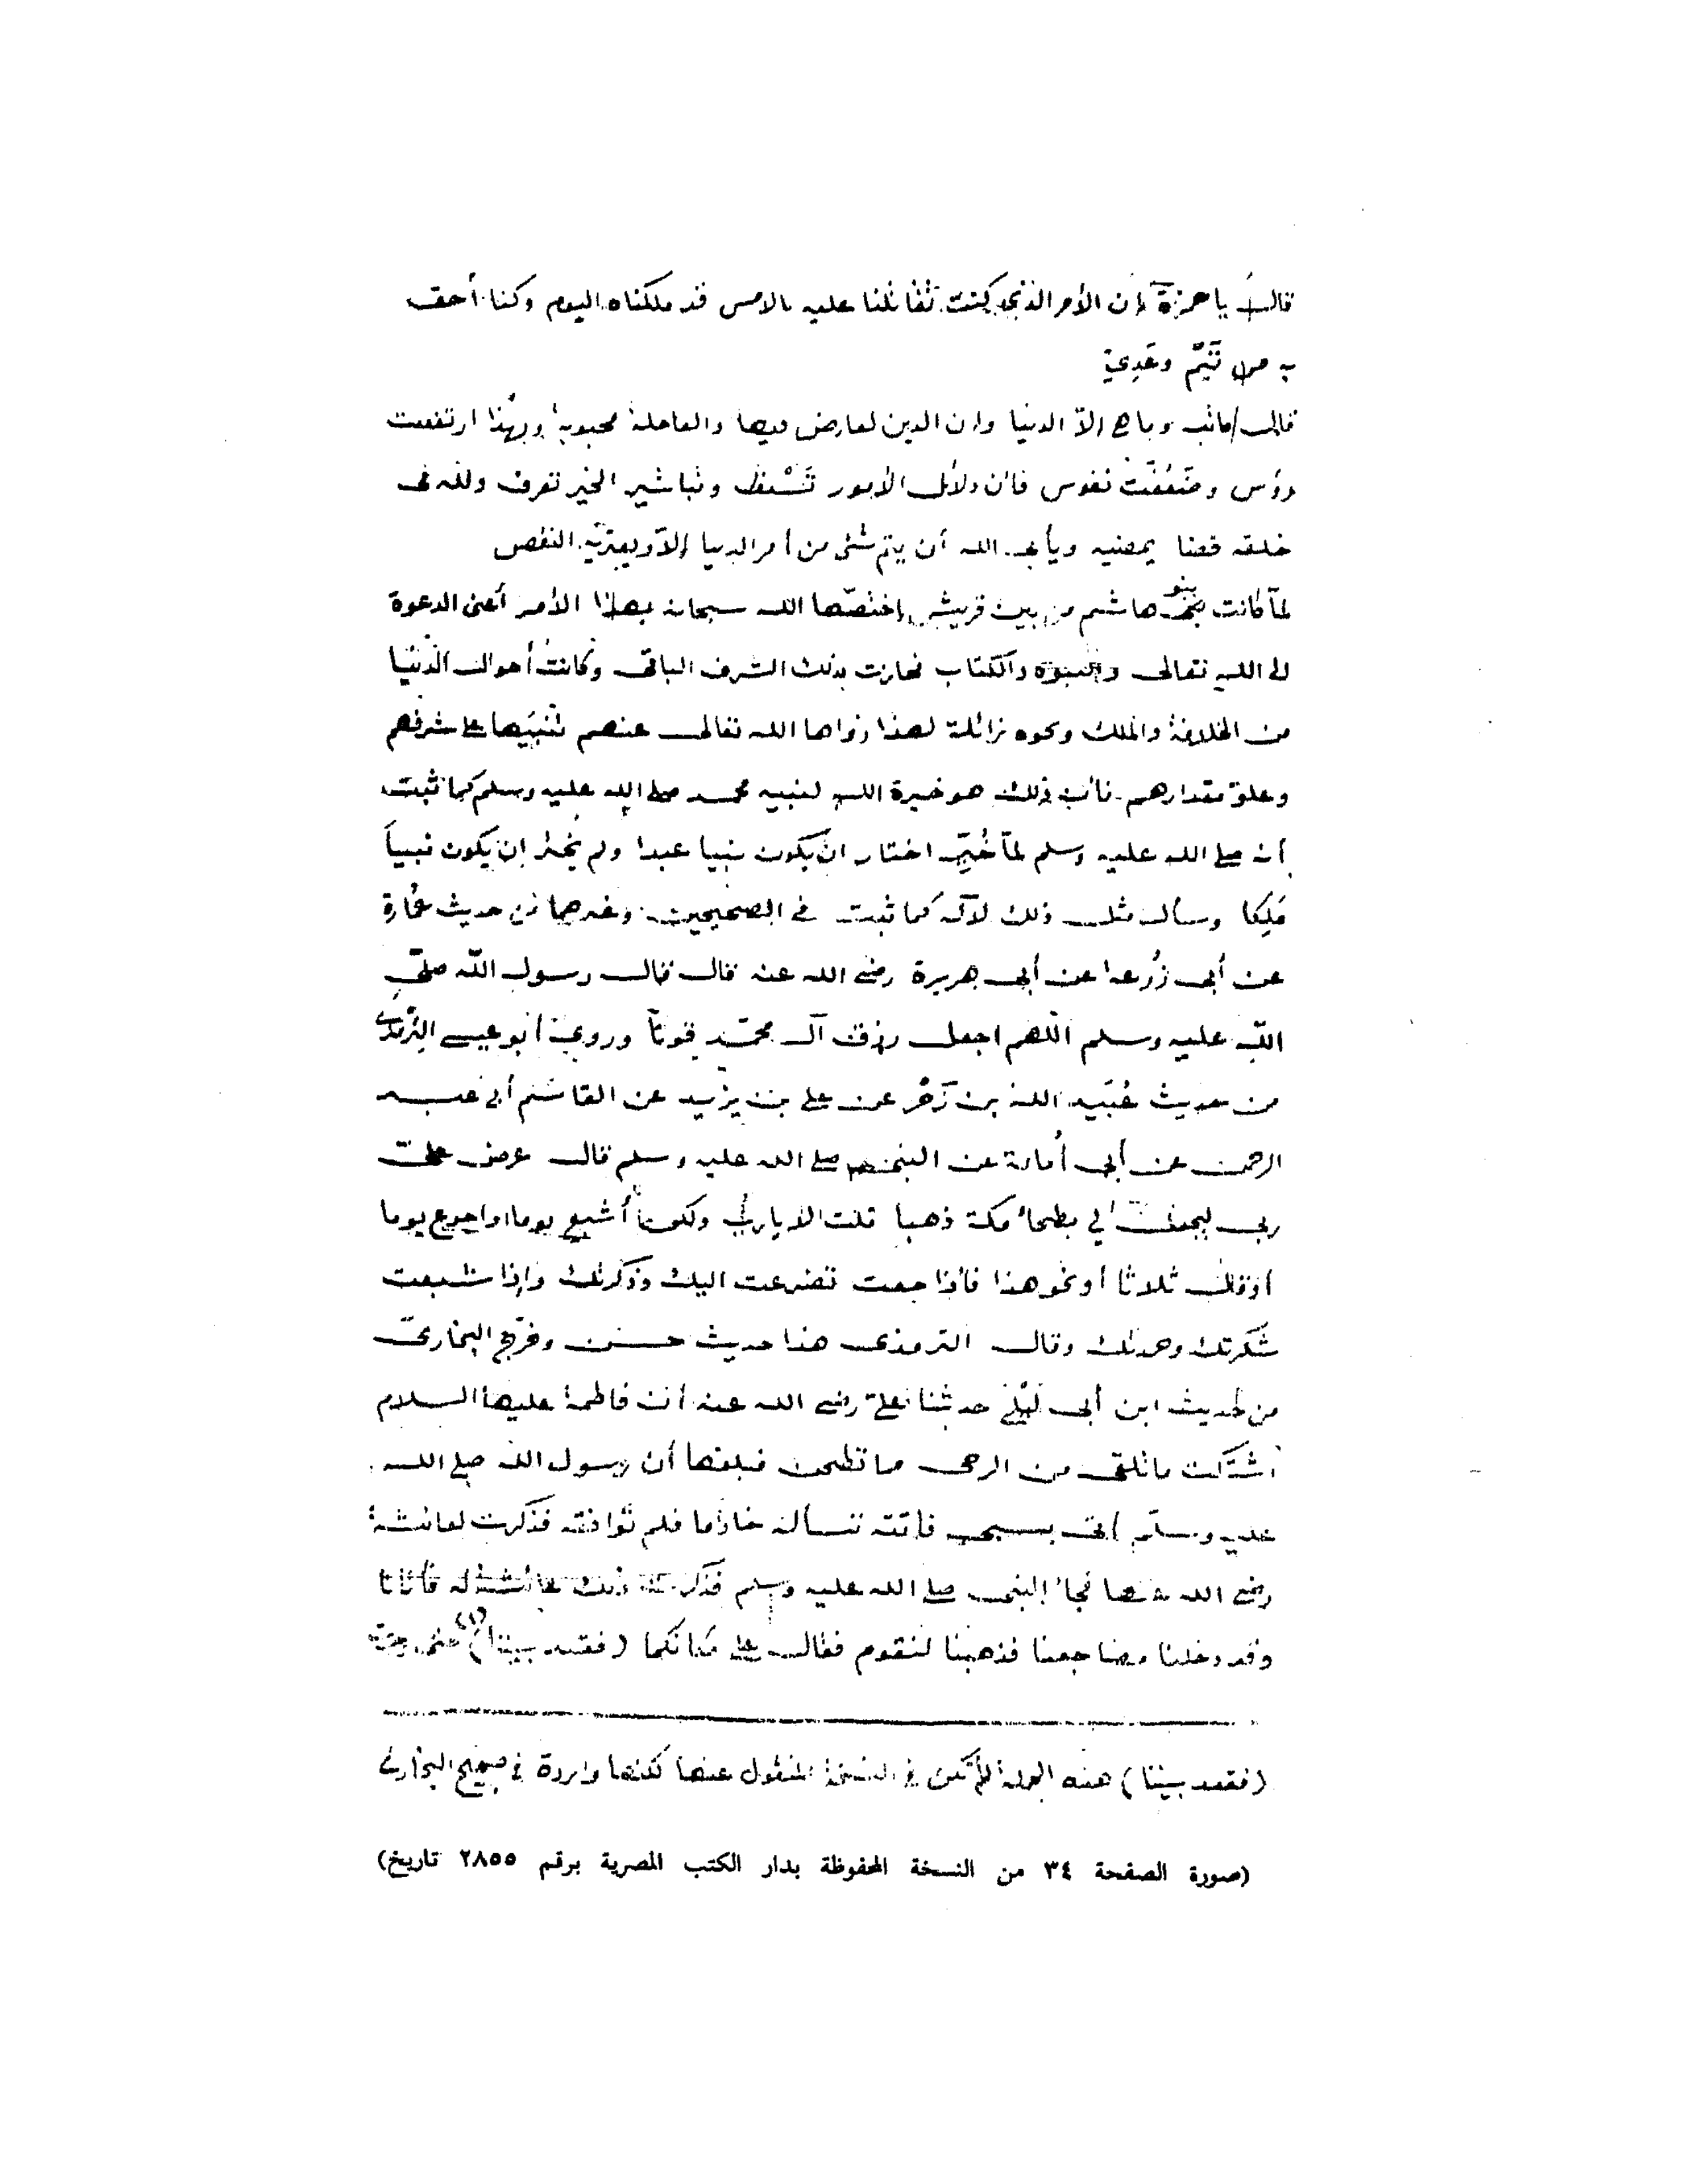 قال يا حمزة إن الأمر الذي كنت تقاتلنا عليه بالامس قد ملكناه اليوم وكنا أحق
به من تَيْم وعَدِيّ
قال وما هي إلاّ الدنيا وان الدين لعارض فيها والعاجلة محبوبة وبهذا ارتفعت
رؤس وضَعُفَت نفوس فان دلائل الأمور وتباشير الخير تعرف ولله في
خلقه قضا يمضيه ويأبى الله أن يتم شئ من أمر الدنيا إلاّ ويعتريه النقص
لمّا كانت بنو هاشم من بين قريش اختصّها الله سبحانه بهذا الأمر أعنى الدعوة
الى الله تعالى والنبوة والكتاب فحازت بذلك الشرف الباقى وكانت أحوال الدنيا
من الخلافة والملك ونحوه زائلة لهذا زواها الله تعالى عنهم تنبيها على شرفهم
وعلو مقدارهم فان ذلك هو خيرة الله لنبيه محمد صلى الله عليه وسلم كما ثبت
أنه صلى الله عليه وسلم لمّا خُيّر اختار ان يكون نبيا عبدا ولم يختر ان يكون نبياً
مَلِكا وسأل مثل ذلك لآله كما ثبت في الصحيحين وغيرهما من حديث عُمارة
عن أبى زُرعة عن أبى هريرة رضى الله عنه قال قال رسول اللّه صلّى
اللّه عليه وسلم اللّهم اجعل رزق آل محمّد قوتاً وروى أبو عيسى التِّرمذى
من حديث عُبَيد الله بن زَحْر عن على بن يزيد عن القاسم أبى عبد
الرحمن عن أبى أمامة عن النبى صلى الله عليه وسلم قال عرض علىّ
ربى ليجعل لي بطحاء مكة ذهبا قلت لا يا رب ولكن أشبع يوما واجوع يوما
أو قال ثلاثا أو نحو هذا فاذا جعت تضرعت اليك وذكرتك وإذا شبعت
شكرتك وحمدتك وقال الترمذى هذا حديث حسن وخرّج البخارىّ
من حديث ابن أبى لَيْلَى حدثنا علىّ رضى الله عنه أن فاطمة عليها السلام
اشتكت ما تلقى من الرحى مما تطحن فبلغها أن رسول الله صلى الله
عليه وسلّم أتى بسبى فأتته تسأله خادما فلم توافقه فذكرت لعائشة
رضى الله عنها فجاء النبى صلى الله عليه وسلم فذكرت ذلك عائشة له فأتانا
وقد دخلنا مضاجعنا فذهبنا لنقوم فقال على مكانكما (فقعد بيننا) (١) حتى وجدت
(فقعد بيننا) هذه الجملة لم تكن فى النسخة المنقول عنها لكنها واردة فى صحيح البخارى
(صورة الصفحة ٣٤ من النسخة المحفوظة بدار الكتب المصرية برقم ٢٨٥٥ تاريخ)